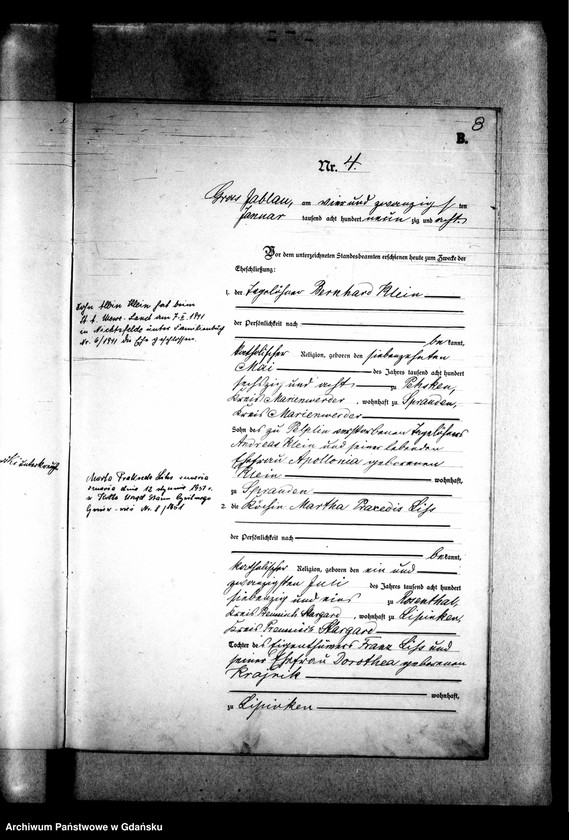 8
B.
Nr. 4.
Gross Jablau, am vier und zwanzig ten
Januar tausend acht hundert neun zig und acht.
Vor dem unterzeichneten Standesbeamten erschienen heute zum Zwecke der
Eheschließung:
1. der Tagelöhner Bernhard Klein
der Persönlichkeit nach
be kannt,
katholischer Religion, geboren den siebenzehnten
Mai des Jahres tausend acht hundert
sechszig und acht zu Pehsken,
Kreis Marienwerder, wohnhaft zu Sprauden,
Kreis Marienwerder
Sohn des zu Pelplin verstorbenen Tagelöhners
Andreas Klein und seiner lebenden
Ehefrau Apollonia geborenen
Klein wohnhaft,
zu Sprauden
2. die Köchin Martha Praxedis Liss
der Persönlichkeit nach
be kannt,
katholischer Religion, geboren den ein und
zwanzigsten Juli des Jahres tausend acht hundert
siebenzig und eins zu Rosenthal,
Kreis Preussisch Stargard, wohnhaft zu Lipinken,
Kreis Preussisch Stargard
Tochter des Eigenthümers Franz Liss und
seiner Ehefrau Dorothea geborenen
Krajnik
wohnhaft,
zu Lipinken
Sohn Albin Klein hat beim
St. A. Wewe-Land am 7.X.1941
in unter Familienbuch
Nr. 6/1941 die Ehe geschlossen.
Marta Prakseda Liss
zmarła dnia 12 stycznia 1951 r.
Urząd Stanu Cywilnego
Gniew Nr. 8/1951
Archiwum Państwowe w Gdańsku